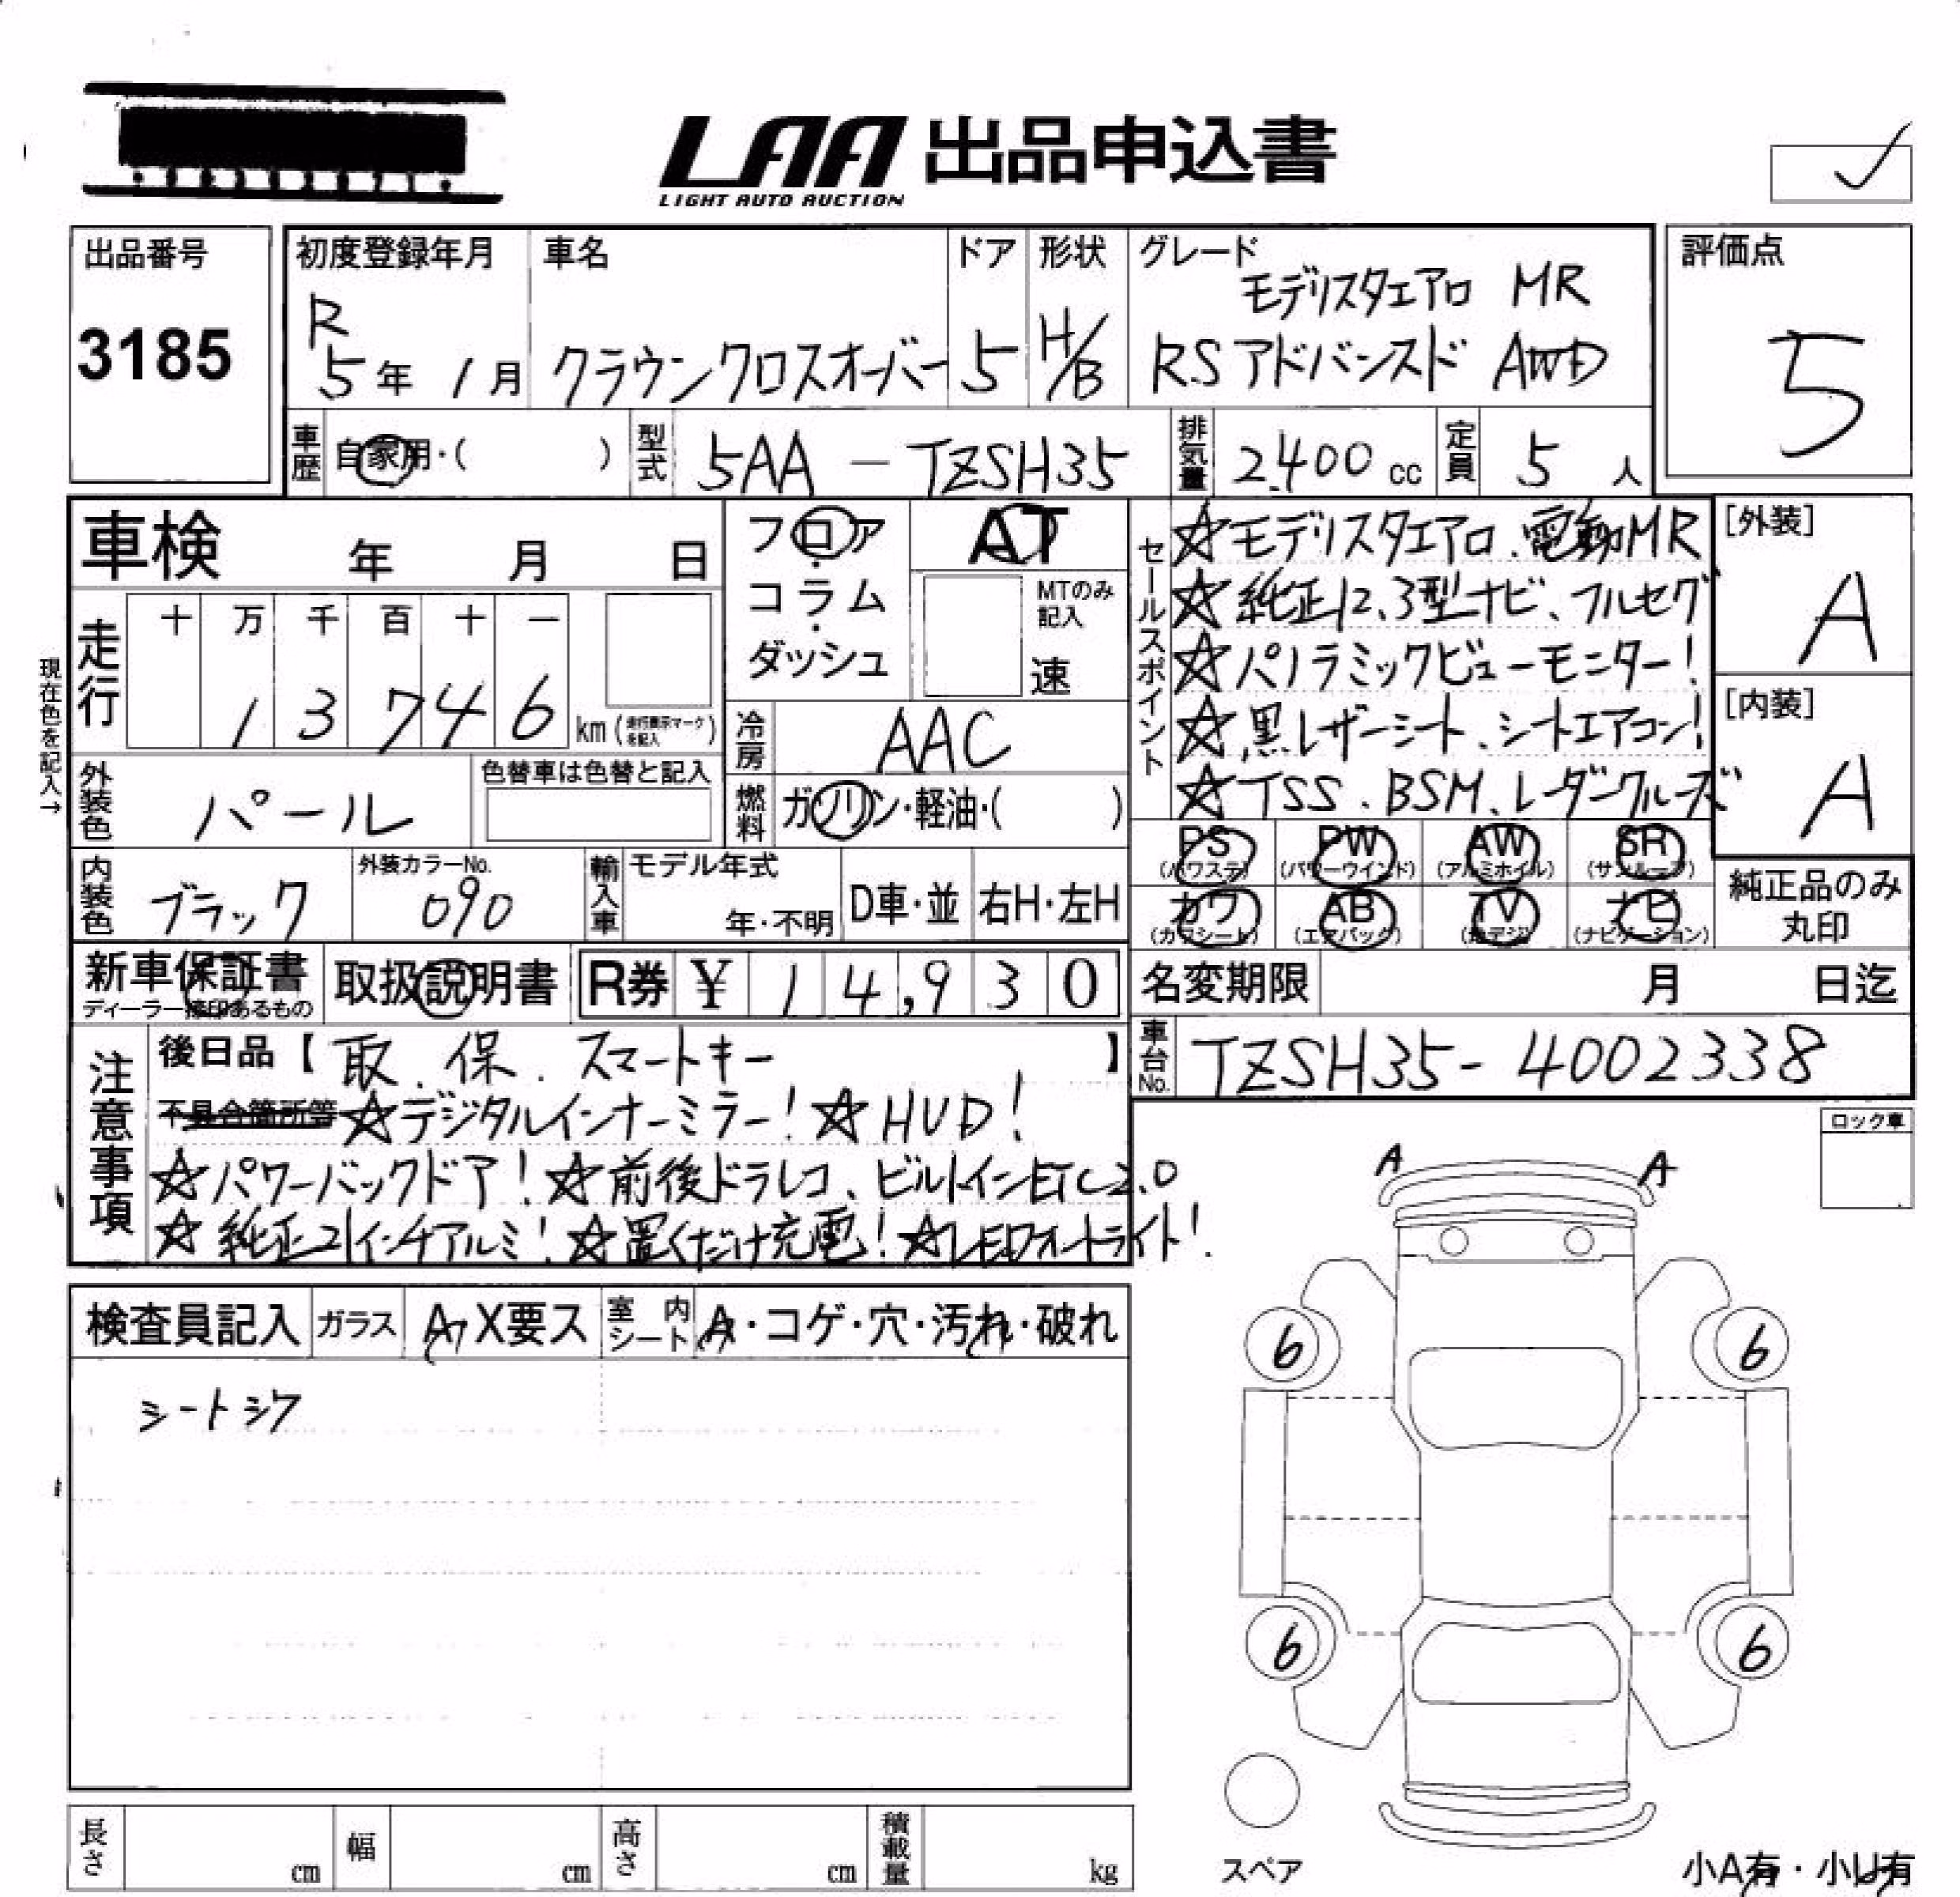 LAA 出品申込書
LIGHT AUTO AUCTION
出品番号
3185
初度登録年月
R
5年 1月
車名
クラウンクロスオーバー
ドア
5
形状
H/B
グレード
モデリスタエアロ MR
RSアドバンスド AWD
評価点
5
車歴 自家用・( )
型式 5AA - TZSH35
排気量 2400 cc
定員 5 人
車検 年 月 日
フロア
・
コラム
・
ダッシュ
AT
MTのみ
記入
速
セールスポイント
☆モデリスタエアロ、電動MR
☆純正12.3型ナビ、フルセグ
☆パノラミックビューモニター!
☆黒レザーシート、シートエアコン!
☆TSS、BSM、レーダークルーズ
[外装]
A
[内装]
A
現在色を記入→
走行
十 万 千 百 十 一
1 3 7 4 6 km (走行表示マークを記入)
冷房 AAC
外装色 パール
色替車は色替と記入
燃料 ガソリン・軽油・( )
PS (パワステ) PW (パワーウインド) AW (アルミホイル) SR (サンルーフ)
カワ (カワシート) AB (エアバック) TV (地デジ) ナビ (ナビゲーション)
純正品のみ
丸印
内装色 ブラック
外装カラーNo.
090
輸入車
モデル年式
年・不明
D車・並
右H・左H
新車保証書
ディーラー捺印あるもの
取扱説明書
R券 ¥ 14,930
名変期限 月 日迄
車台No. TZSH35-4002338
注意事項
後日品【取.保.スマートキー】
不具合箇所等 ☆デジタルインナーミラー! ☆HUD!
☆パワーバックドア! ☆前後ドラレコ、ビルトインETC2.0
☆純正21インチアルミ! ☆置くだけ充電! ☆LEDオートライト!
ロック車
A A
検査員記入 ガラス A X要ス 室内シート A・コゲ・穴・汚れ・破れ
シートシワ
6 6
6 6
スペア
長さ cm 幅 cm 高さ cm 積載量 kg
小A有・小U有